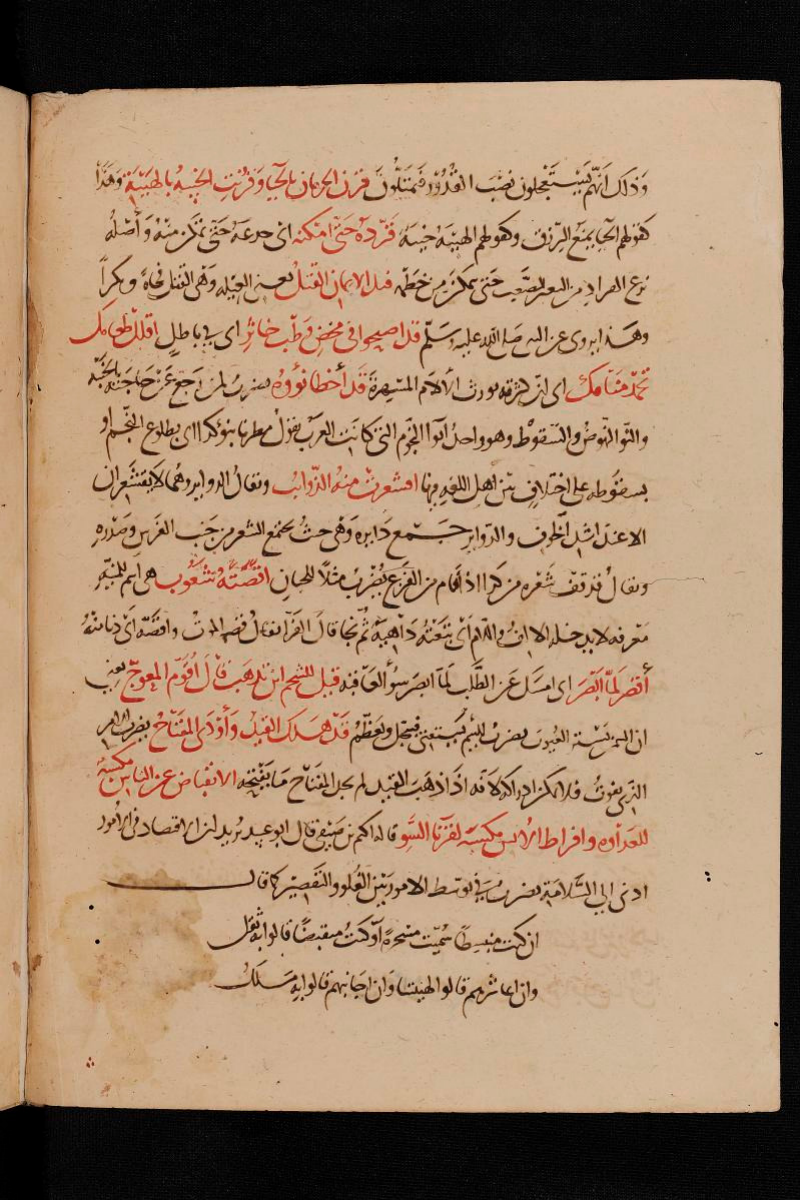 وذلك أنهم يستعجلون نصب القدور فيمتلون قرن الحرمان بالحيا وقرنت الخيبة بالهيبة وهذا
كقولهم الحيا يمنع الرزق وكقولهم الهيبة خيبة قرده حتى امكنه اي خدعه حتى تمكن منه وأصله
نزع القراد من البعير الصعب حتى يتمكن من خطمه قيد الايمان الفتك يعني الغيلة وهي القتل فجأة ومكراً
وهذا يروى عن النبي صلى الله عليه وسلم قد اصبحوا في مخض وطب خاثر اي في باطل اقلل طعامك
تحمد منامك اي ان كثرته تورث الآلام المسهرة قد أخطا نوؤه يضرب لمن رجع عن حاجته بالخيبة
والنو النهوض والسقوط وهو واحد انوا النجوم التي كانت العرب تقول مطرنا بنو كذا اي بطلوع النجم او
بسقوطه على اختلاف بين أهل اللغة فيها اقشعرت منه الذوائب ويقال الدواير وهما لا تقشعران
الا عند اشد الخوف والدواير جمع دايره وهي حيث يجتمع الشعر من جنب الفرس وصدره
ويقال قد قف شعره من كذا اذا قام من الفزع يضرب مثلاً للجبان اقصته شعوب هي اسم للمنية
معرفه لا يدخله الالف واللام أي تبعته داهية ثم نجا قال الفرآ يقال قصه الموت واقصه أي دنا منه
أقصر لما أبصر اي امسك عن الطلب لما أبصر سوء العاقبة قيل للشحم اين تذهب قال أقوم المعوج يعني
ان السمن يستر العيوب يضرب للئيم يستغني فيبجل ويعظم قد هلك القيد وأودى المفتاح يضرب للامر
الذي يفوت فلا يمكن ادراكه لانه اذا ذهب القيد لم يجد المفتاح ما يفتحه الانقباض عن الناس مكسبة
للعداوه وافراط الانس مكسبة لقرنا السو قاله اكثم بن صيفي قال ابو عبيد يريد ان الاقتصاد في الامور
ادنى الى السلامة يضرب في توسط الامور بين الغلو والتقصير كما قال
ان كنت منبسطاً سميت مسخرة أو كنت منقبضاً قالوا به ثقل
وان اعاشرهم قالوا لهيبتنا وان اجانبهم قالوا به ملل